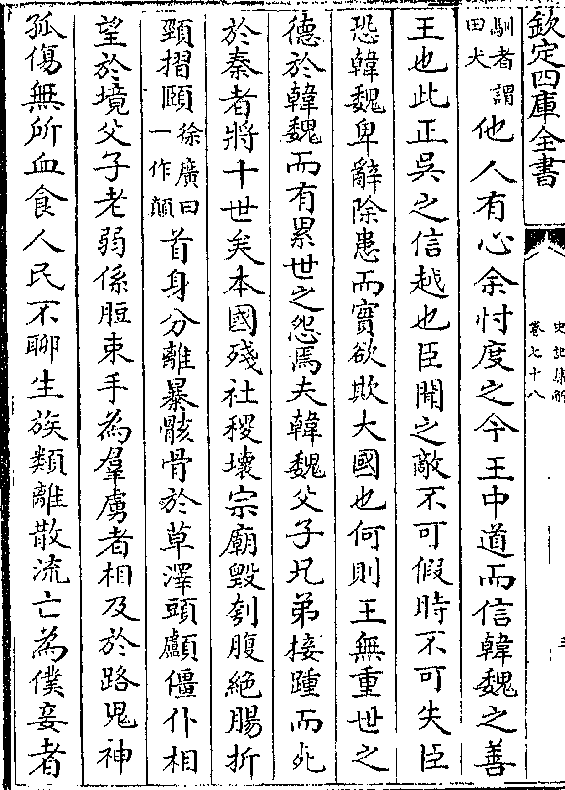 欽定四庫全書
史記集解
卷七十八
三
馴者謂田犬他人有心余忖度之今王中道而信韓魏之善
王也此正吳之信越也臣聞之敵不可假時不可失臣
恐韓魏卑辭除患而實欲欺大國也何則王無重世之
德於韓魏而有累世之怨焉夫韓魏父子兄弟接踵而死
於秦者將十世矣本國殘社稷壞宗廟毀刳腹絕腸折
頸摺頤徐廣曰一作顛首身分離暴骸骨於草澤頭顱僵仆相
望於境父子老弱係脰束手為羣虜者相及於路鬼神
孤傷無所血食人民不聊生族類離散流亡為僕妾者